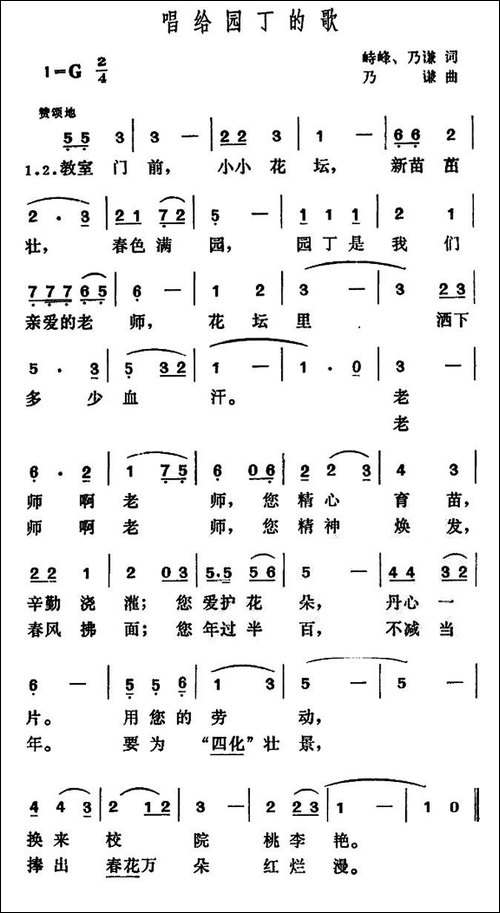 唱给园丁的歌
1=G 2/4
峙峰、乃谦 词
乃 谦 曲
赞颂地
5 5 3 | 3 — | 2 2 3 | 1 — | 6 6 2 |
1.2.教室 门 前, 小小 花 坛, 新苗 茁
2 · 3 | 2 1 7 2 | 5 — | 1 1 1 | 2 1 |
壮, 春色 满 园, 园 丁 是 我 们
7 7 7 6 5 | 6 — | 1 2 | 3 — | 3 2 3 |
亲爱的老 师, 花 坛 里 洒下
5 · 3 | 5 3 2 | 1 — | 1 · 0 | 3 — |
多 少 血 汗。 老
老
6 · 2 | 1 7 5 | 6 0 6 | 2 2 3 | 4 3 |
师 啊 老 师, 您 精 心 育 苗,
师 啊 老 师, 您 精 神 焕 发,
2 2 1 | 2 0 3 | 5 · 5 5 6 | 5 — | 4 4 3 2 |
辛勤 浇 灌; 您 爱护 花 朵, 丹心 一
春风 拂 面; 您 年过 半 百, 不减 当
6 — | 5 5 6 | 1 3 | 5 — | 5 — |
片。 用 您 的 劳 动,
年。 要 为 “四化” 壮 景,
4 4 3 | 2 1 2 | 3 — | 2 2 3 | 1 — | 1 0 ‖
换 来 校 院 桃李 艳。
捧 出 春花万 朵 红 烂 漫。